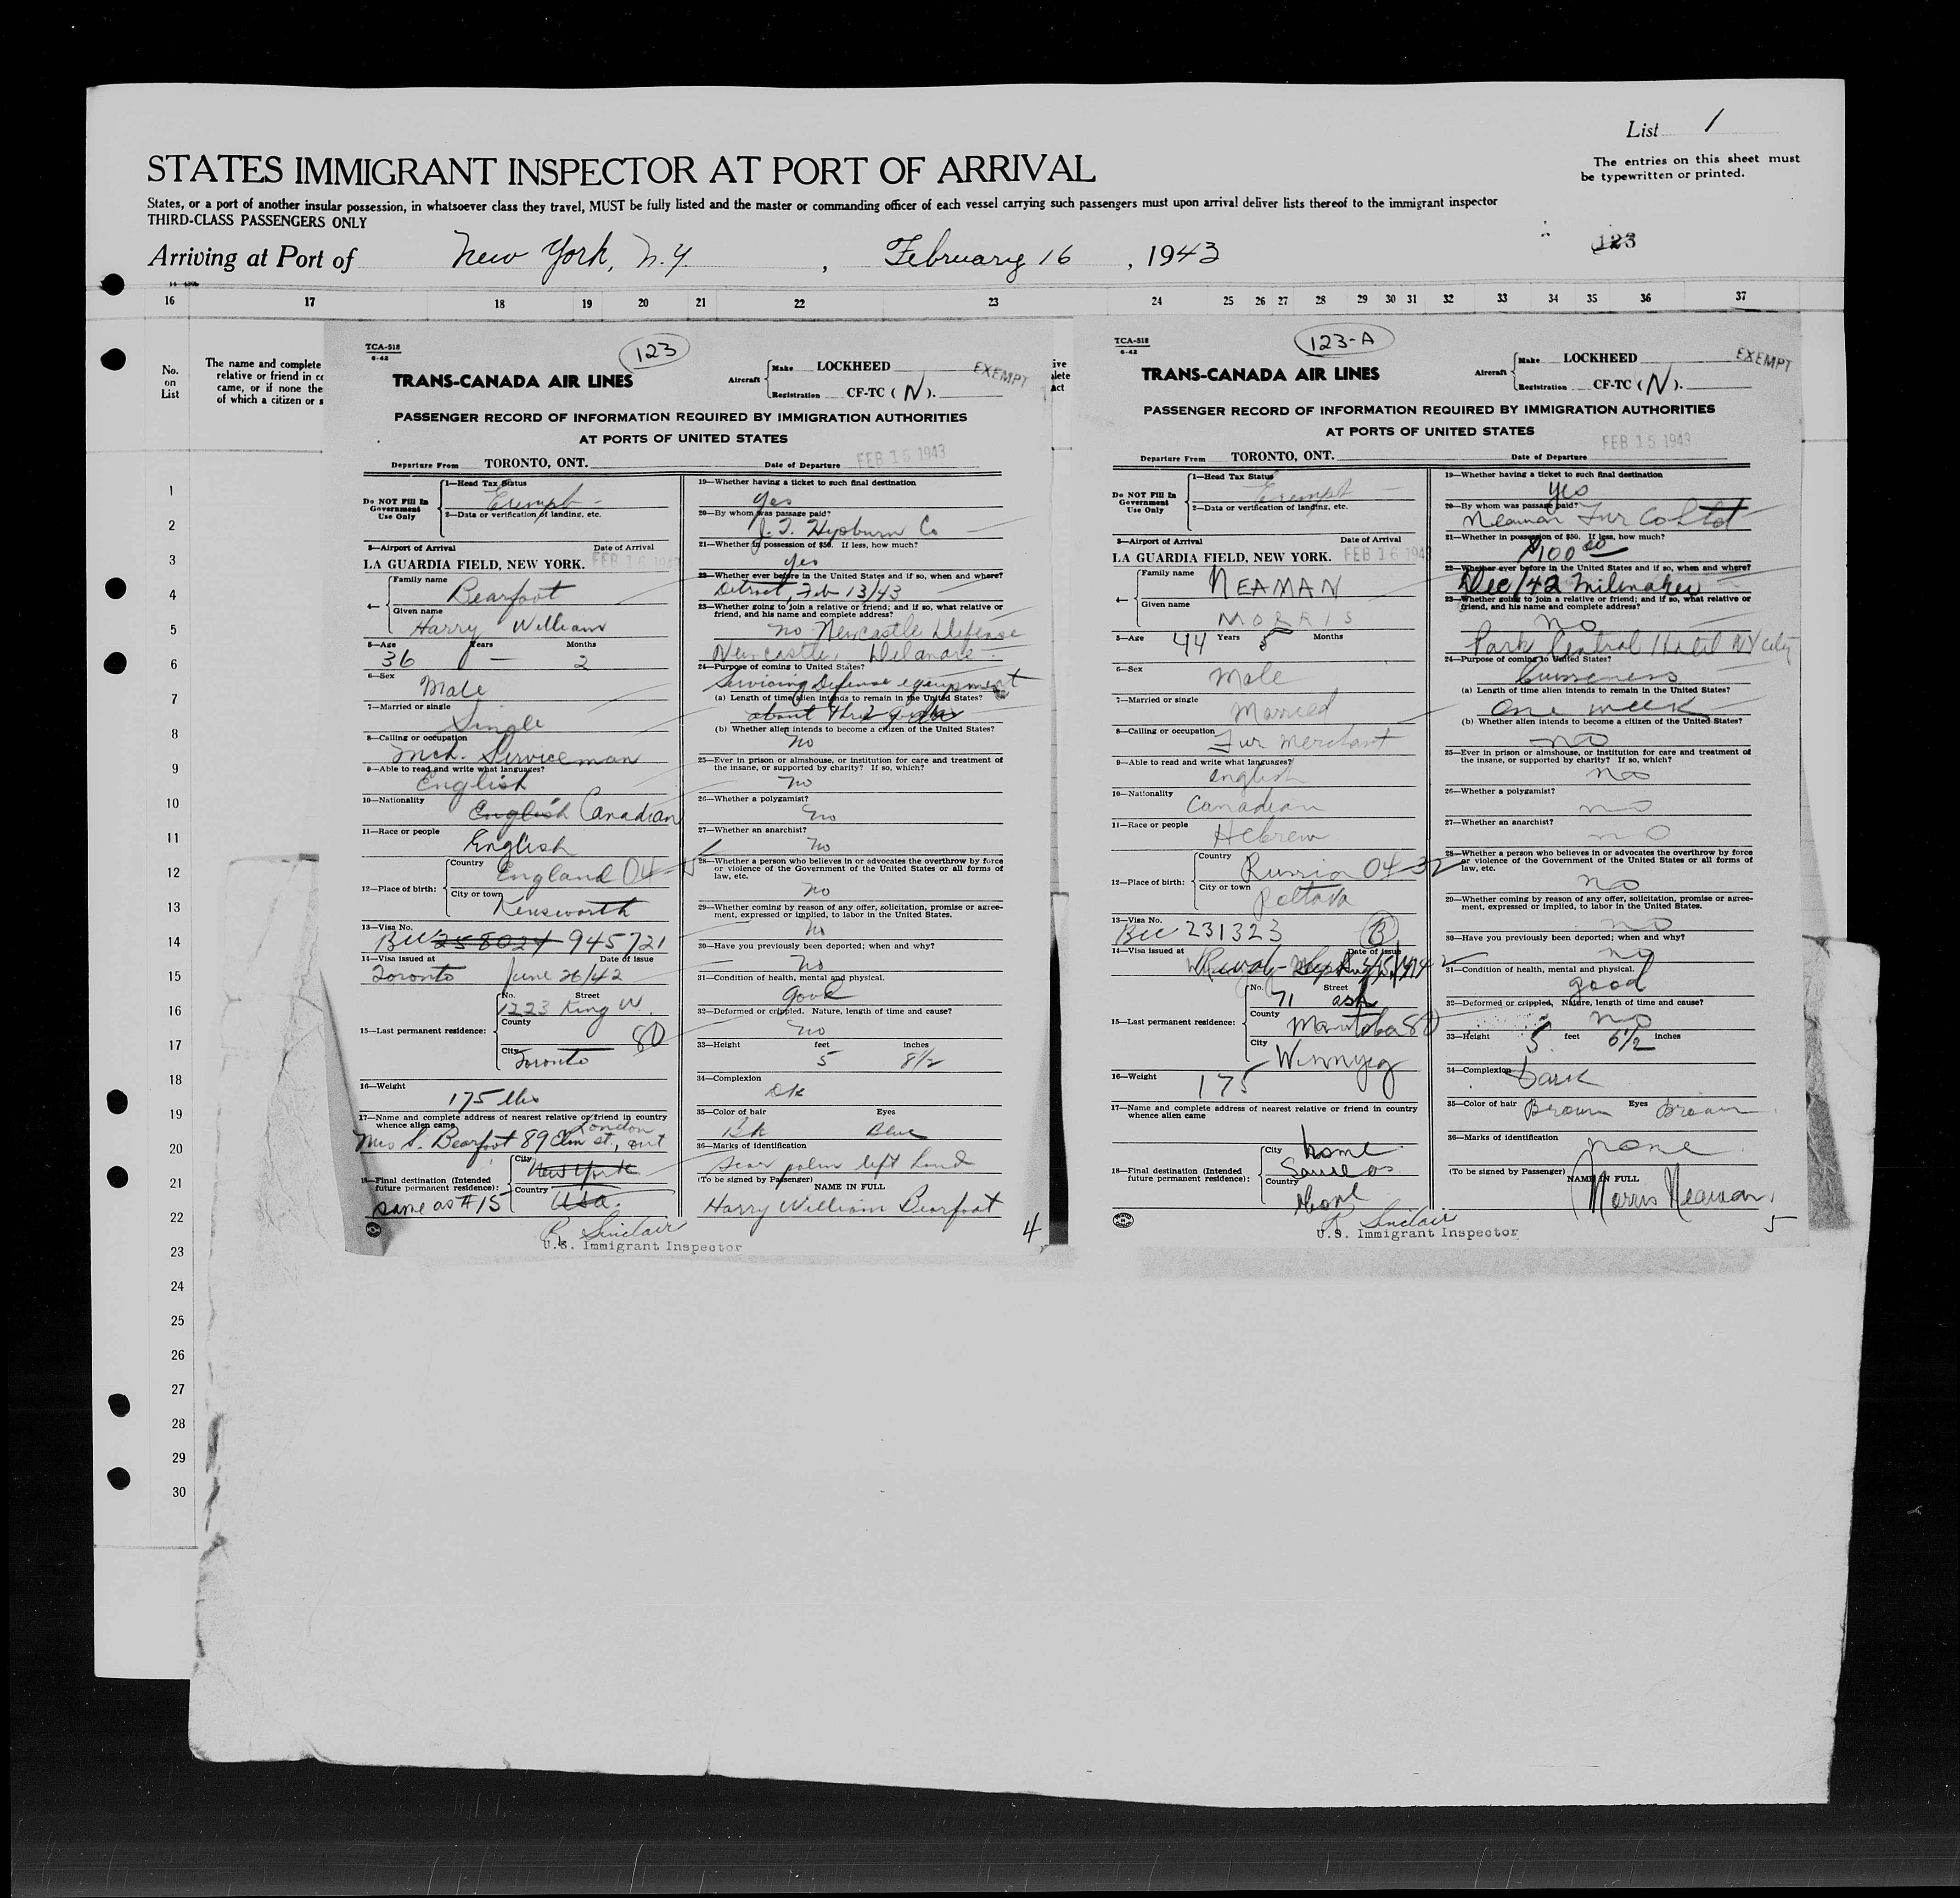 List 1
STATES IMMIGRANT INSPECTOR AT PORT OF ARRIVAL
The entries on this sheet must
be typewritten or printed.
States, or a port of another insular possession, in whatsoever class they travel, MUST be fully listed and the master or commanding officer of each vessel carrying such passengers must upon arrival deliver lists thereof to the immigrant inspector
THIRD-CLASS PASSENGERS ONLY
Arriving at Port of New York, N.Y. , February 16 , 1943
123
16 17 18 19 20 21 22 23 24 25 26 27 28 29 30 31 32 33 34 35 36 37
No.
on
List
The name and complete
relative or friend in
came, or if none the
of which a citizen or s
1
2
3
4
5
6
7
8
9
10
11
12
13
14
15
16
17
18
19
20
21
22
23
24
25
26
27
28
29
30
TCA-518
6-42
123
TRANS-CANADA AIR LINES
Aircraft
Make LOCKHEED
Registration CF-TC (N).
EXEMPT
PASSENGER RECORD OF INFORMATION REQUIRED BY IMMIGRATION AUTHORITIES
AT PORTS OF UNITED STATES
Departure From TORONTO, ONT. Date of Departure FEB 15 1943
Do NOT Fill In
Government
Use Only
1—Head Tax Status
Exempt
2—Data or verification of landing, etc.
3—Airport of Arrival Date of Arrival
LA GUARDIA FIELD, NEW YORK. FEB 16 1943
4—
Family name
Bearfoot
Given name
Harry William
5—Age Years Months
36 — 2
6—Sex
Male
7—Married or single
Single
8—Calling or occupation
Mch. Serviceman
9—Able to read and write what languages?
English
10—Nationality
English Canadian
11—Race or people
English
12—Place of birth:
Country
England 04
City or town
Kensworth
13—Visa No.
BCC 258024 945721
14—Visa issued at Date of issue
Toronto June 26/42
15—Last permanent residence:
No. Street
1223 King W.
County
80
City
Toronto
16—Weight
175 lbs
17—Name and complete address of nearest relative or friend in country
whence alien came
Mrs S. Bearfoot 89 Elm st., London ont
18—Final destination (Intended
future permanent residence):
same as #15
City
New York
Country
USA.
19—Whether having a ticket to such final destination
Yes
20—By whom was passage paid?
J. T. Hepburn Co
21—Whether in possession of $50. If less, how much?
yes
22—Whether ever before in the United States and if so, when and where?
Detroit, Feb 13/43
23—Whether going to join a relative or friend; and if so, what relative or
friend, and his name and complete address?
no Newcastle Defense
Newcastle, Delaware
24—Purpose of coming to United States?
Servicing Defense equipment
(a) Length of time alien intends to remain in the United States?
about
(b) Whether alien intends to become a citizen of the United States?
No
25—Ever in prison or almshouse, or institution for care and treatment of
the insane, or supported by charity? If so, which?
no
26—Whether a polygamist?
no
27—Whether an anarchist?
no
28—Whether a person who believes in or advocates the overthrow by force
or violence of the Government of the United States or all forms of
law, etc.
no
29—Whether coming by reason of any offer, solicitation, promise or agree-
ment, expressed or implied, to labor in the United States.
no
30—Have you previously been deported; when and why?
no
31—Condition of health, mental and physical.
good
32—Deformed or crippled. Nature, length of time and cause?
no
33—Height feet inches
5 8 1/2
34—Complexion
Dk
35—Color of hair Eyes
Bk Blue
36—Marks of identification
scar palm left hand
(To be signed by Passenger)
NAME IN FULL
Harry William Bearfoot
R. Sinclair
U.S. Immigrant Inspector
4
TCA-518
6-42
123-A
TRANS-CANADA AIR LINES
Aircraft
Make LOCKHEED
Registration CF-TC (N).
EXEMPT
PASSENGER RECORD OF INFORMATION REQUIRED BY IMMIGRATION AUTHORITIES
AT PORTS OF UNITED STATES
Departure From TORONTO, ONT. Date of Departure FEB 15 1943
Do NOT Fill In
Government
Use Only
1—Head Tax Status
Exempt
2—Data or verification of landing, etc.
3—Airport of Arrival Date of Arrival
LA GUARDIA FIELD, NEW YORK. FEB 16 194
4—
Family name
NEAMAN
Given name
MORRIS
5—Age Years Months
44 5
6—Sex
Male
7—Married or single
Married
8—Calling or occupation
Fur Merchant
9—Able to read and write what languages?
English
10—Nationality
Canadian
11—Race or people
Hebrew
12—Place of birth:
Country
Russia 04-32
City or town
Poltava
13—Visa No.
BCC 231323 B
14—Visa issued at Date of issue
15—Last permanent residence:
No. Street
71 ash
County
Manitoba 80
City
Winnipeg
16—Weight
175
17—Name and complete address of nearest relative or friend in country
whence alien came
18—Final destination (Intended
future permanent residence):
City
home
Same as
Country
19—Whether having a ticket to such final destination
yes
20—By whom was passage paid?
Neaman Fur Co Ltd
21—Whether in possession of $50. If less, how much?
$100 00
22—Whether ever before in the United States and if so, when and where?
Dec/42 Milwakee
23—Whether going to join a relative or friend; and if so, what relative or
friend, and his name and complete address?
no
Park Central Hotel NY City
24—Purpose of coming to United States?
(a) Length of time alien intends to remain in the United States?
One week
(b) Whether alien intends to become a citizen of the United States?
no
25—Ever in prison or almshouse, or institution for care and treatment of
the insane, or supported by charity? If so, which?
no
26—Whether a polygamist?
no
27—Whether an anarchist?
no
28—Whether a person who believes in or advocates the overthrow by force
or violence of the Government of the United States or all forms of
law, etc.
no
29—Whether coming by reason of any offer, solicitation, promise or agree-
ment, expressed or implied, to labor in the United States.
no
30—Have you previously been deported; when and why?
no
31—Condition of health, mental and physical.
good
32—Deformed or crippled, Nature, length of time and cause?
no
33—Height 5 feet 6 1/2 inches
34—Complexion
Dark
35—Color of hair Brown Eyes Brown
36—Marks of identification
none
(To be signed by Passenger)
NAME IN FULL
Morris Neaman
R Sinclair
U.S. Immigrant Inspector
5